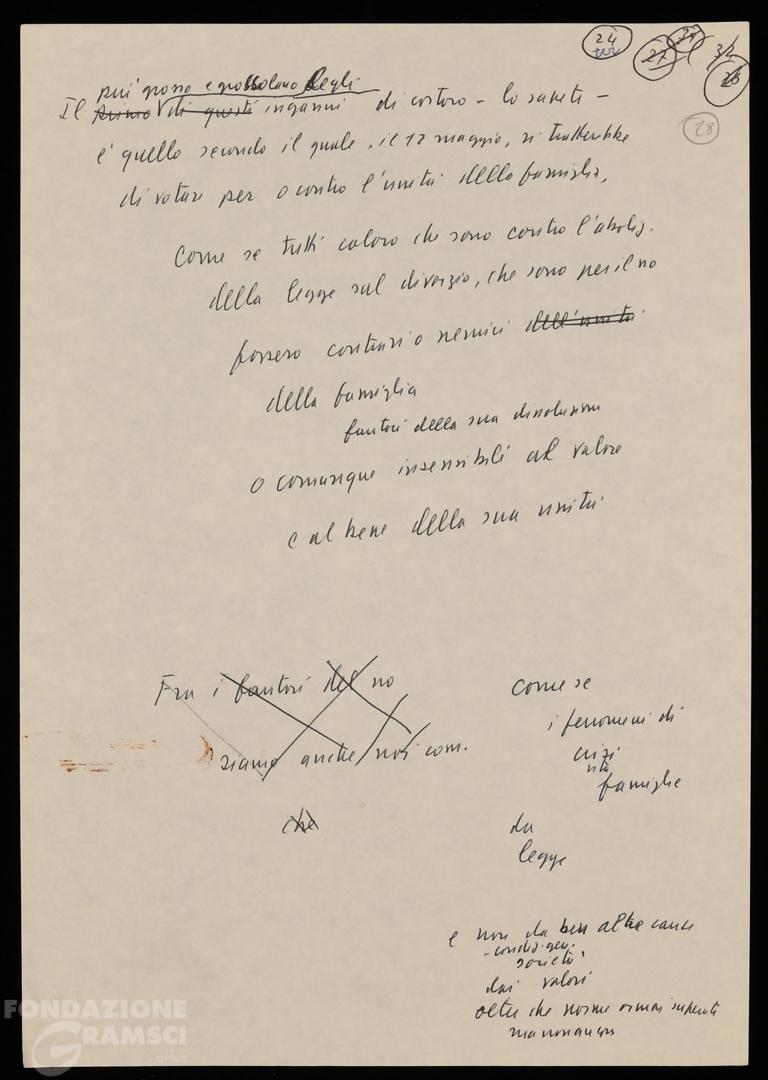 24
27
24
3/2
26
28
più grosso e grossolano degli
Il primo di questi inganni di costoro - lo sapete -
è quello secondo il quale, il 12 maggio, si tratterebbe
di votare per o contro l'unità della famiglia,
Come se tutti coloro che sono contro l'aboliz.
della legge sul divorzio, che sono per il no
fossero contrari o nemici dell'unità
della famiglia
fautori della sua dissoluzione
o comunque insensibili al valore
e al bene della sua unità
Fra i fautori del no
siamo anche noi com.
che
come se
i fenomeni di
crisi
famiglie
da
legge
e non da ben altre cause
- condiz. gen.
società,
dai valori
oltre che norme ormai superate
ma non ancora
FONDAZIONE
GRAMSCI
onlus